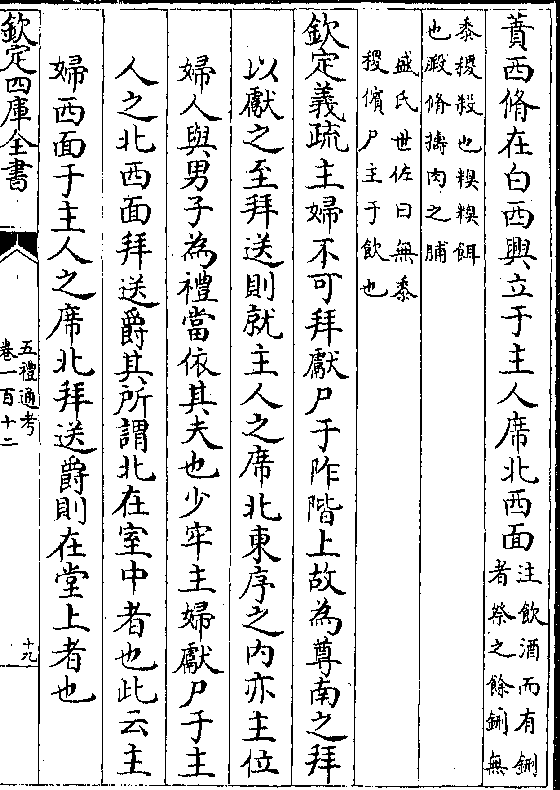 蕡西脩在白西興立于主人席北西面注飲酒而有鉶
者祭之餘鉶無
黍稷殺也糗糗餌
也腶脩擣肉之脯
盛氏世佐曰無黍
稷儐尸主于飲也
欽定義疏主婦不可拜獻尸于阼階上故為尊南之拜
以獻之至拜送則就主人之席北東序之内亦主位
婦人與男子為禮當依其夫也少牢主婦獻尸于主
人之北西面拜送爵其所謂北在室中者也此云主
婦西面于主人之席北拜送爵則在堂上者也
欽定四庫全書
五禮通考
卷一百十二
十九